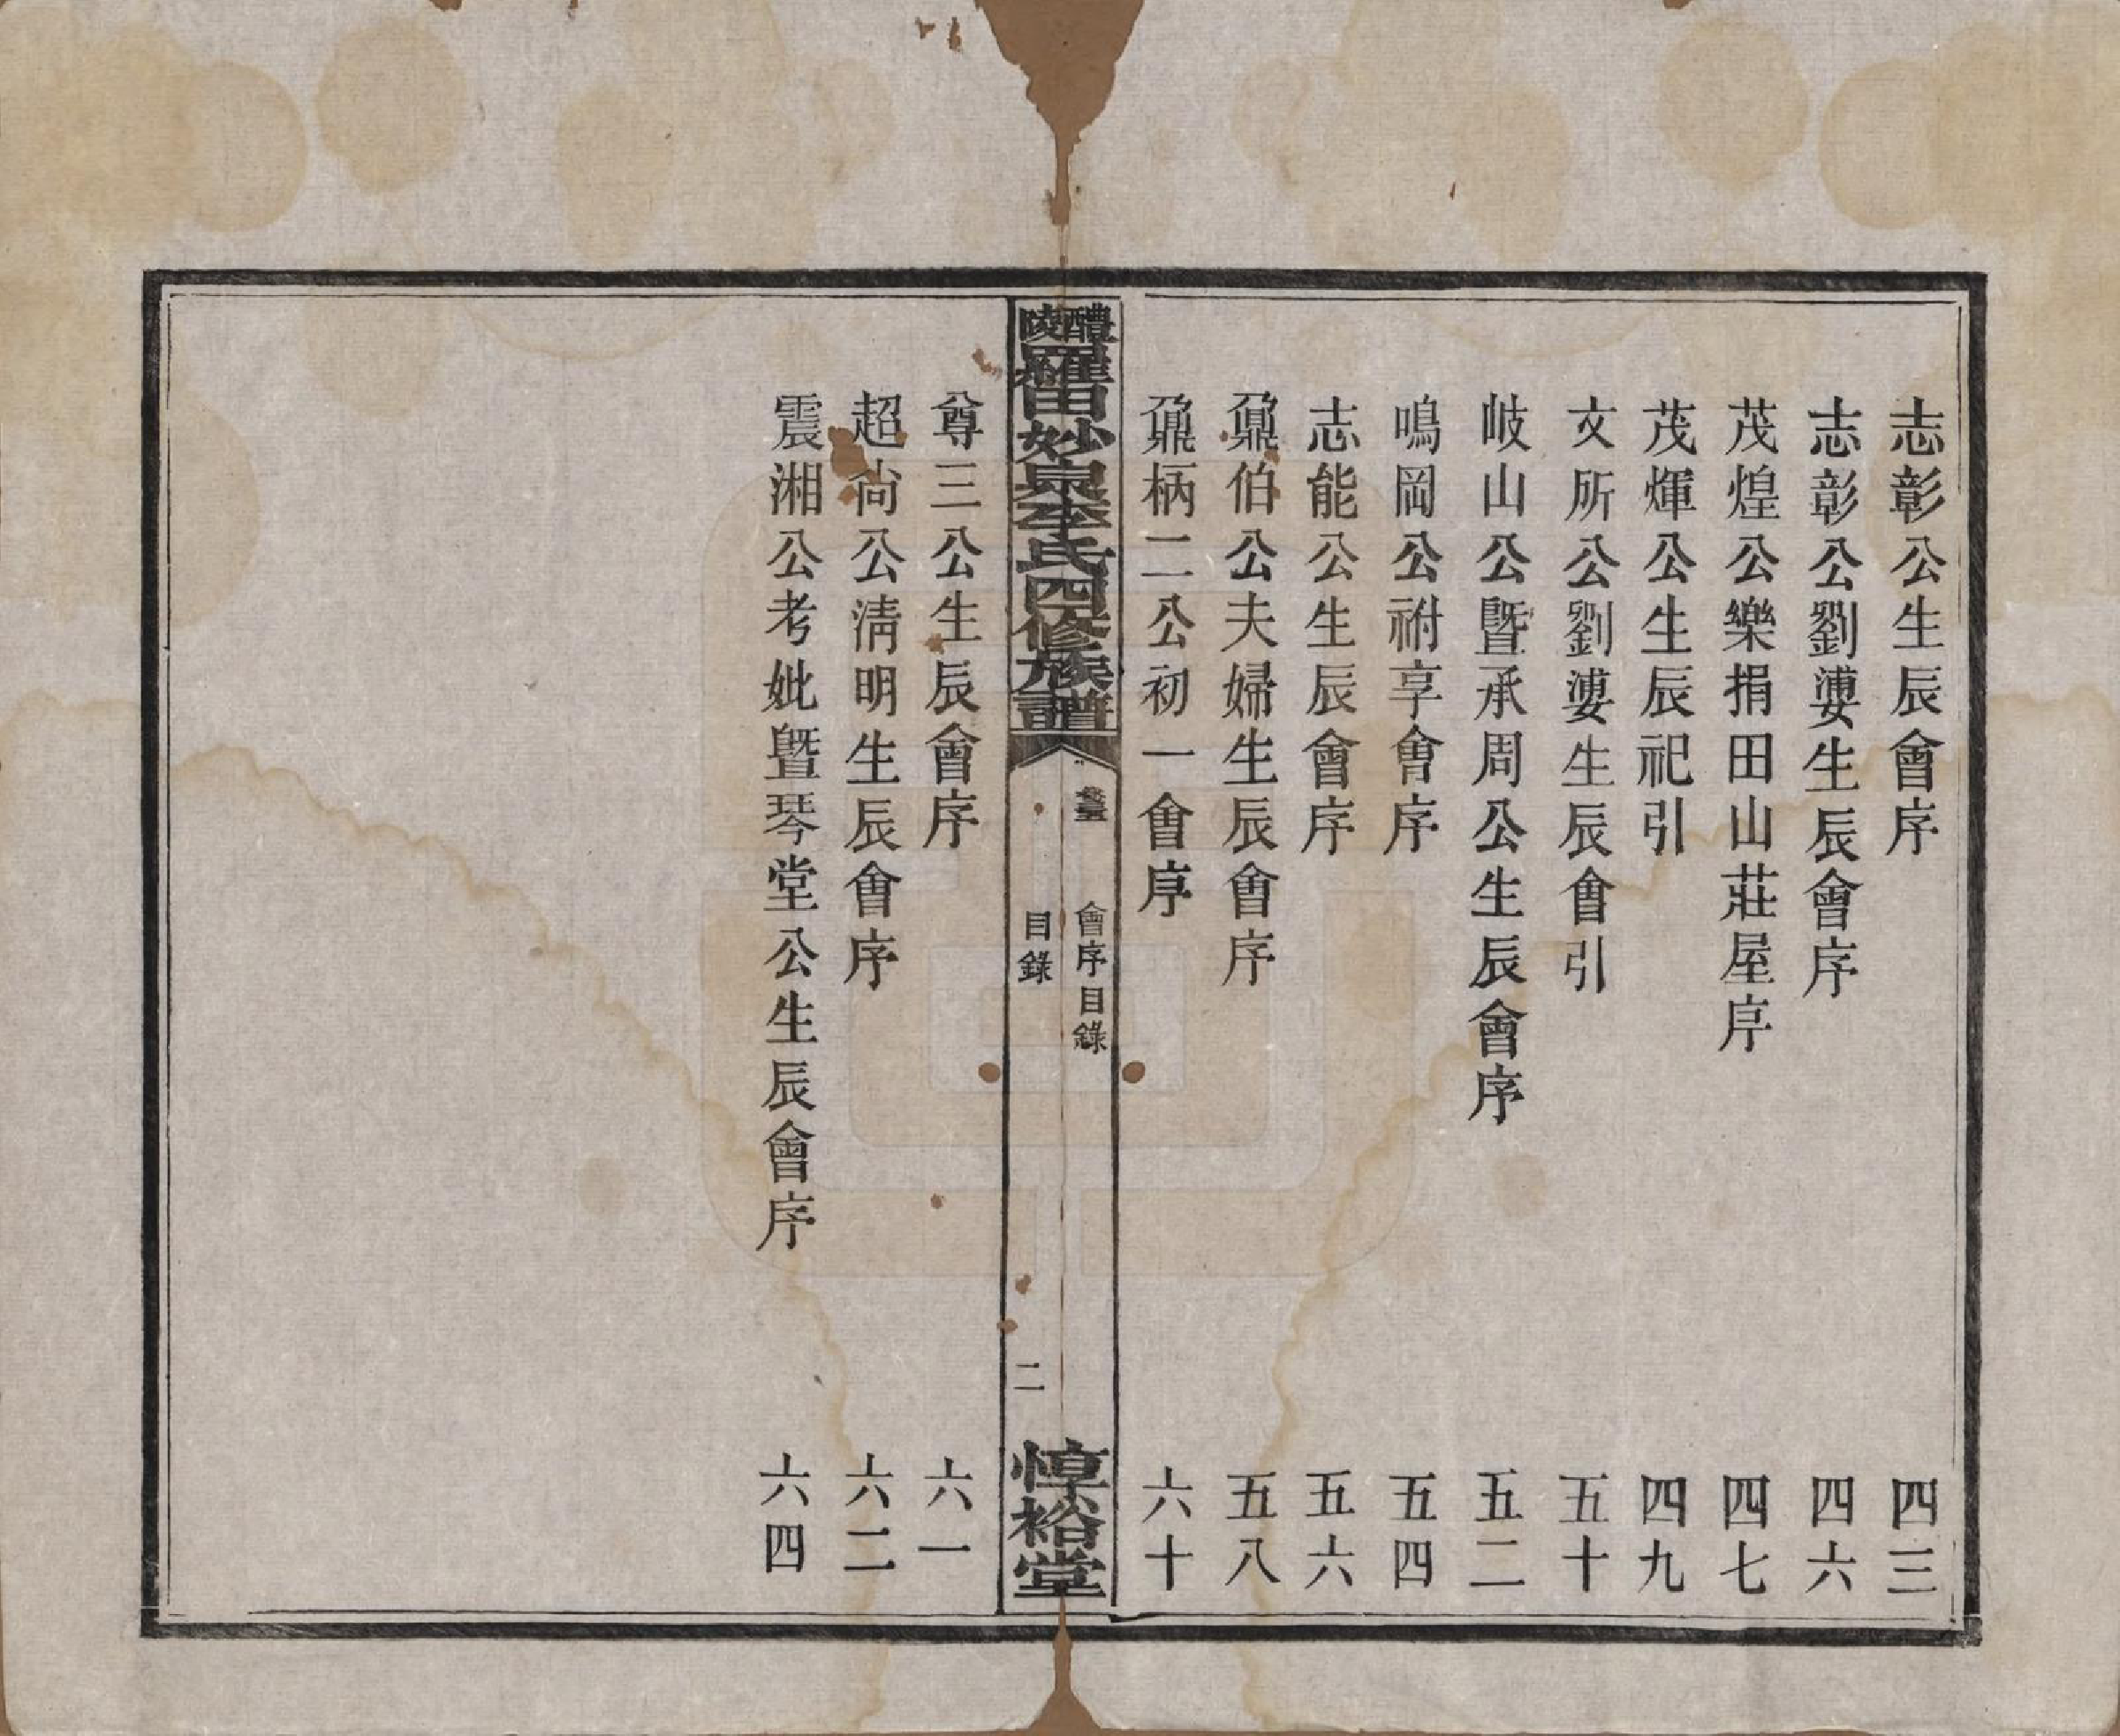 志彰公生辰會序 四三
志彰公劉孺生辰會序 四六
茂煌公樂捐田山莊屋序 四七
茂煇公生辰祀引 四九
文所公劉孺生辰會引 五十
岐山公暨承周公生辰會序 五二
鳴岡公祔享會序 五四
志能公生辰會序 五六
鼐伯公夫婦生辰會序 五八
鼐柄二公初一會序 六十
醴陵羅田妙泉李氏四修族譜
會序目錄
目錄
二
惇裕堂
尊三公生辰會序 六一
超尚公淸明生辰會序 六二
震湘公考妣暨琴堂公生辰會序 六四